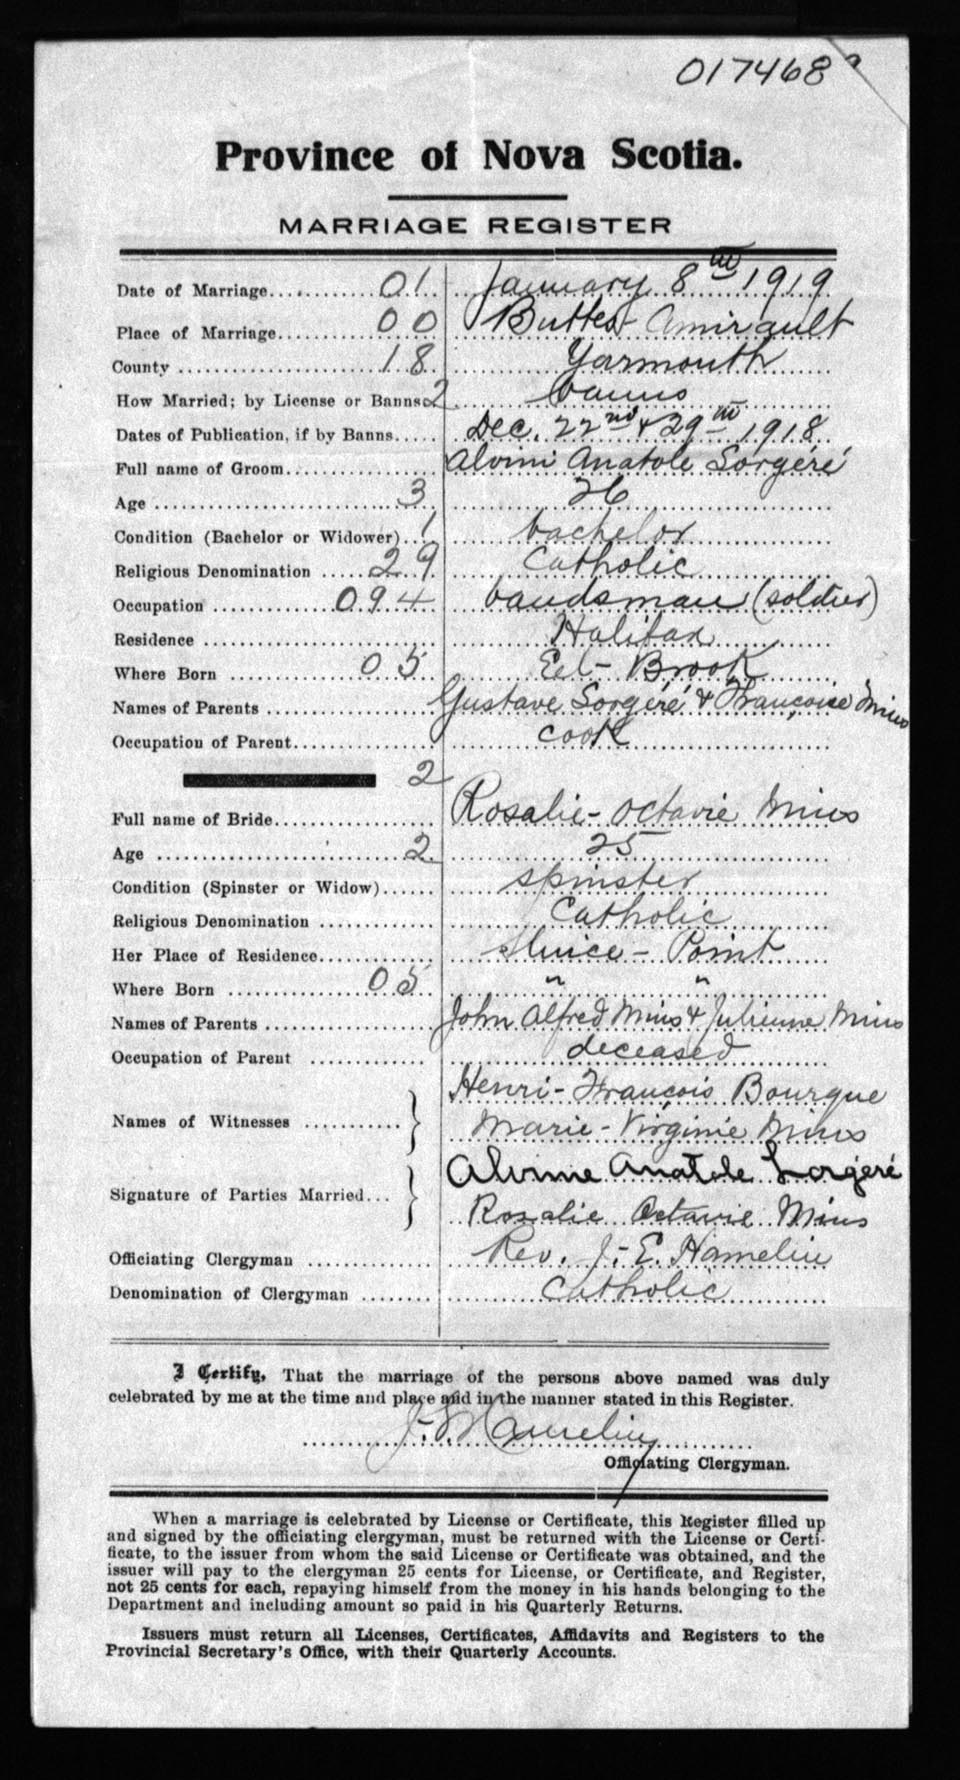 017468
Province of Nova Scotia.
MARRIAGE REGISTER
Date of Marriage 01 January 8th 1919
Place of Marriage 00 Buttes-Amirault
County 18 Yarmouth
How Married; by License or Banns 2 banns
Dates of Publication, if by Banns Dec. 22nd & 29th 1918
Full name of Groom Alvini Anatole Sorgéré
Age 3 26
Condition (Bachelor or Widower) 1 bachelor
Religious Denomination 29 Catholic
Occupation 094 bandsman (soldier)
Residence Halifax
Where Born 05 Eel-Brook
Names of Parents Gustave Sorgéré & Françoise Mius
Occupation of Parent cook
2
Full name of Bride Rosalie-Octavie Mius
Age 2 25
Condition (Spinster or Widow) spinster
Religious Denomination Catholic
Her Place of Residence Sluice-Point
Where Born 05 " "
Names of Parents John Alfred Mius & Julienne Mius
Occupation of Parent deceased
Names of Witnesses Henri-François Bourque
Marie-Virginie Mius
Signature of Parties Married Alvine Anatole Sorgéré
Rosalie Octavie Mius
Officiating Clergyman Rev. J.-E. Hamelin
Denomination of Clergyman Catholic
I Certify, That the marriage of the persons above named was duly
celebrated by me at the time and place and in the manner stated in this Register.
J.-E. Hamelin
Officiating Clergyman.
When a marriage is celebrated by License or Certificate, this Register filled up
and signed by the officiating clergyman, must be returned with the License or Certi-
ficate, to the issuer from whom the said License or Certificate was obtained, and the
issuer will pay to the clergyman 25 cents for License, or Certificate, and Register,
not 25 cents for each, repaying himself from the money in his hands belonging to the
Department and including amount so paid in his Quarterly Returns.
Issuers must return all Licenses, Certificates, Affidavits and Registers to the
Provincial Secretary's Office, with their Quarterly Accounts.